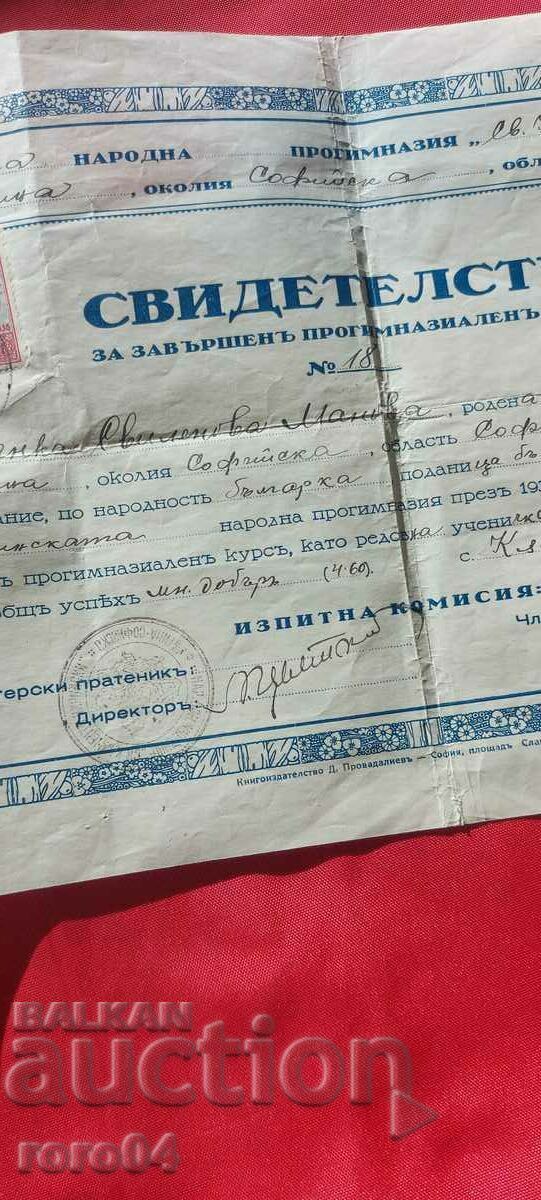 НАРОДНА ПРОГИМНАЗИЯ „Св.
околия Софийска, обл
СВИДЕТЕЛСТ
ЗА ЗАВЪРШЕНЪ ПРОГИМНАЗИАЛЕНЪ
№ 18
Свиленова Манова, родена
, околия Софийска, область Соф
ание, по народность българка поданица бъ
народна прогимназия през 19
ъ прогимназиаленъ курсъ, като редовна учени
общъ успѣхъ мн. добъръ (4.60). с.
ИЗПИТНА КОМИСИЯ:
терски пратеникъ: Чл
Директоръ:
Книгоиздателство Д. Провадалиев — София, площадъ Сла
BALKAN
auction
roro04